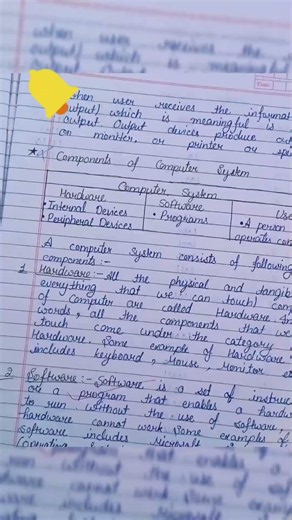 when user receives the
output) which is meaningful is
when user receives the informat
output) which is meaningful is
output Output devices produce out
on monitor, or printer or spe
* Components of Computer System
Computer System
Hardware Software Use
• Internal Devices • Programs • A person
• Peripheral Devices operates com
A computer System consists of following
components :-
1. Hardware :- All the physical and tangib
everything that we can touch) com
of Computer are called Hardware. In
words, all the components that we
touch come under the category
Hardware. Some example of Hardware
includes keyboard, Mouse, Monitor e
2. Software :- Software is a set of instruc
or a program that enables a hardw
to run. Without the use of software,
hardware cannot work. Some examples of
software includes Microsoft
hardware cannot work Some
Software includes